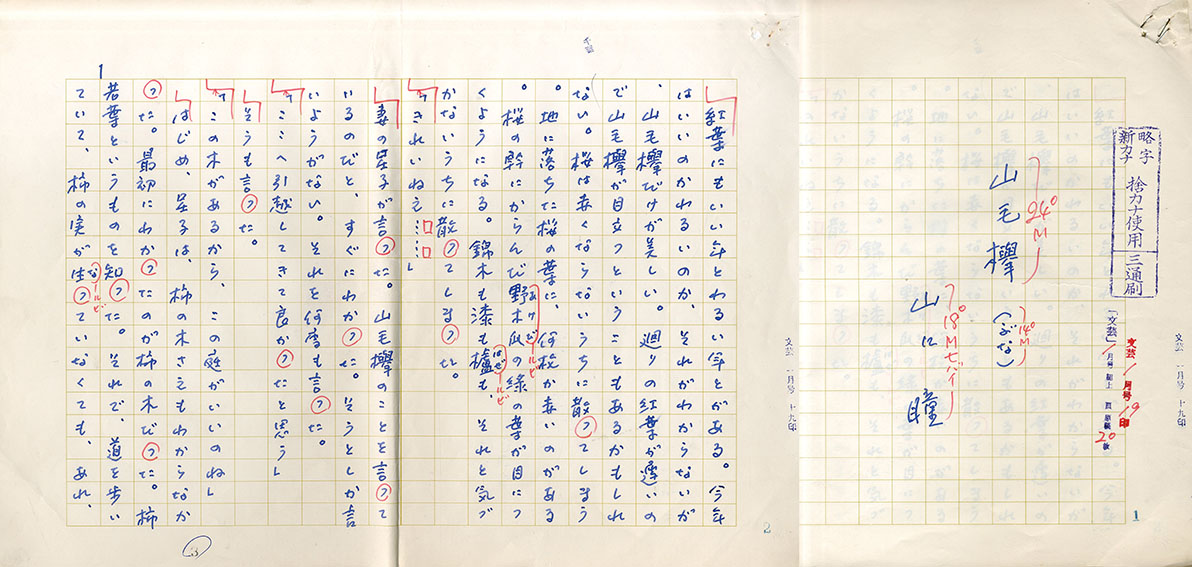 略字
新カナ
捨カナ使用
三通刷
山毛欅
24°M
(ぶな)
14°M
山口
瞳
18°M七バイ
文芸 1月号 19印
「文芸」1月号 頁 原稿 20枚
文芸 一月号 十九印
1
紅葉にもいい年とわるい年とがある。今年
はいいのかわるいのか、それがわからないが
、山毛欅だけが美しい。廻りの紅葉が遅いの
で山毛欅が目立つということもあるかもしれ
ない。桜は赤くならないうちに散ってしまう
。地に落ちた桜の葉に、何枚か赤いのがある
。桜の幹にからんだ野木瓜の緑の葉が目につ
あけび
ルビ
くようになる。錦木も漆も櫨も、それと気づ
はぜ
ルビ
かないうちに散ってしまった。
「きれいねえ……」
妻の星子が言った。山毛欅のことを言って
いるのだと、すぐにわかった。そうとしか言
いようがない。それを何度も言った。
「ここへ引越してきて良かったと思う」
そうも言った。
「この木があるから、この庭がいいのね」
はじめ、星子は、柿の木さえもわからなか
った。最初にわかったのが柿の木だった。柿
若葉というものを知った。それで、道を歩い
ていて、柿の実が生っていなくても、あれ、
な
ルビ
文芸 一月号 十九印
2
千葉
1
3